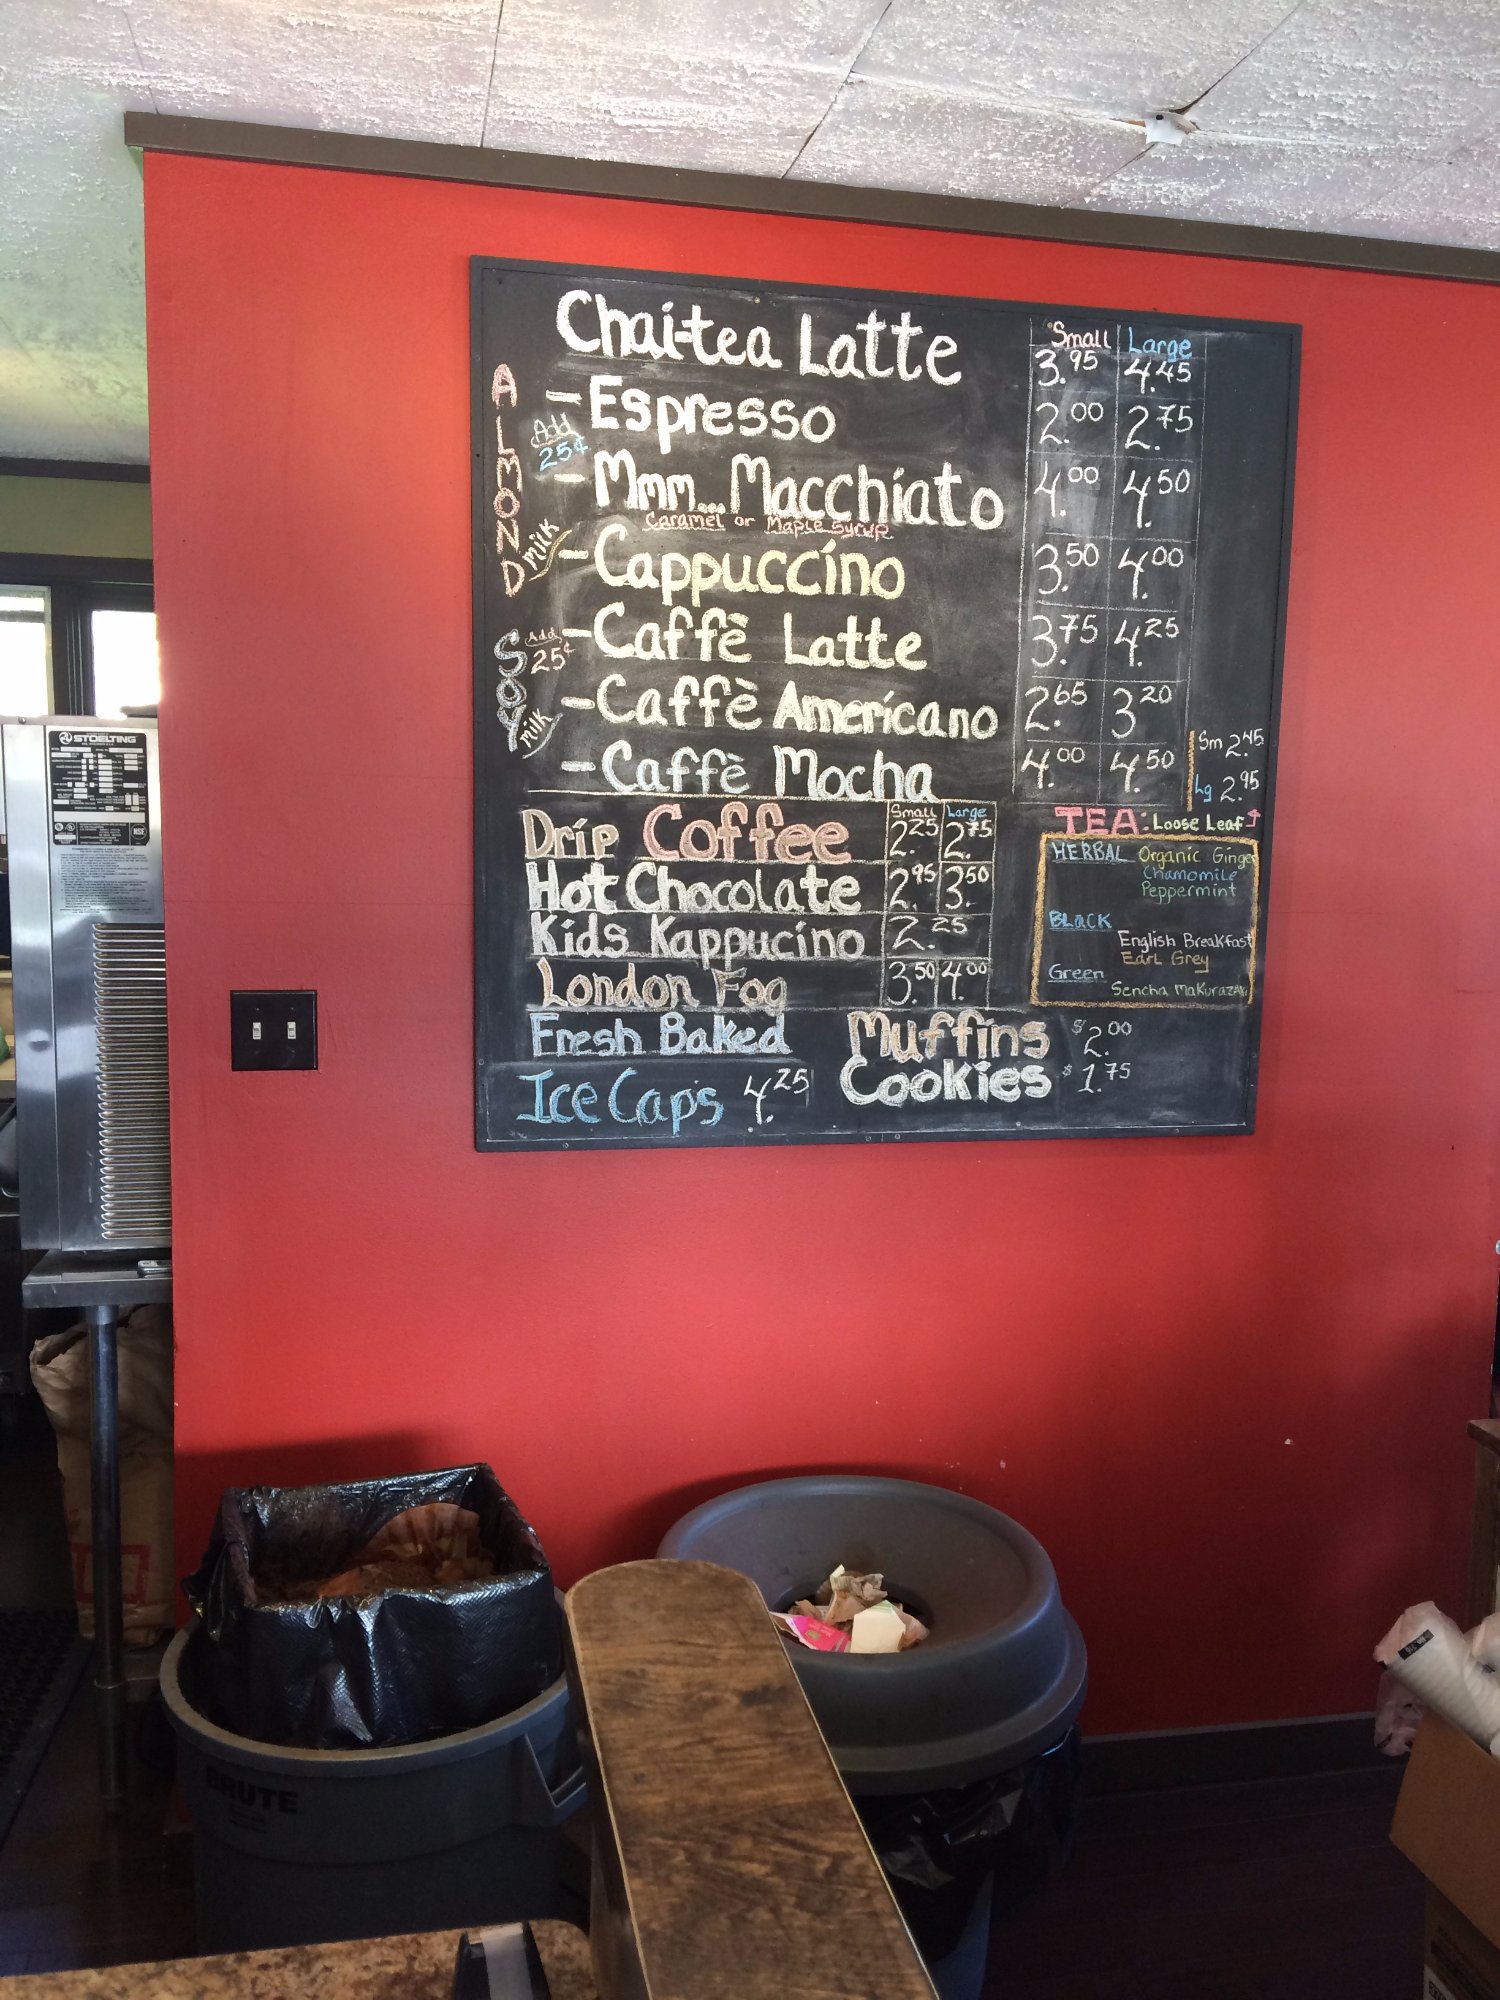 Small Large
Chai-tea Latte 3.95 4.45
- Espresso 2.00 2.75
- Mmm... Macchiato 4.00 4.50
Caramel or Maple Syrup
- Cappuccino 3.50 4.00
- Caffè Latte 3.75 4.25
- Caffè Americano 2.65 3.20
- Caffè Mocha 4.00 4.50
ALMOND milk
Add 25¢
SOY milk
Add 25¢
Small Large
Drip Coffee 2.25 2.75
Hot Chocolate 2.95 3.50
Kids Kappucino 2.25
London Fog 3.50 4.00
Sm 2.45
Lg 2.95
TEA: Loose Leaf
HERBAL Organic Ginger
Chamomile
Peppermint
BLACK
English Breakfast
Earl Grey
Green
Sencha Makurazaki
Fresh Baked Muffins $2.00
Cookies $1.75
Ice Cap's 4.25
STOELTING
NSF
BRUTE